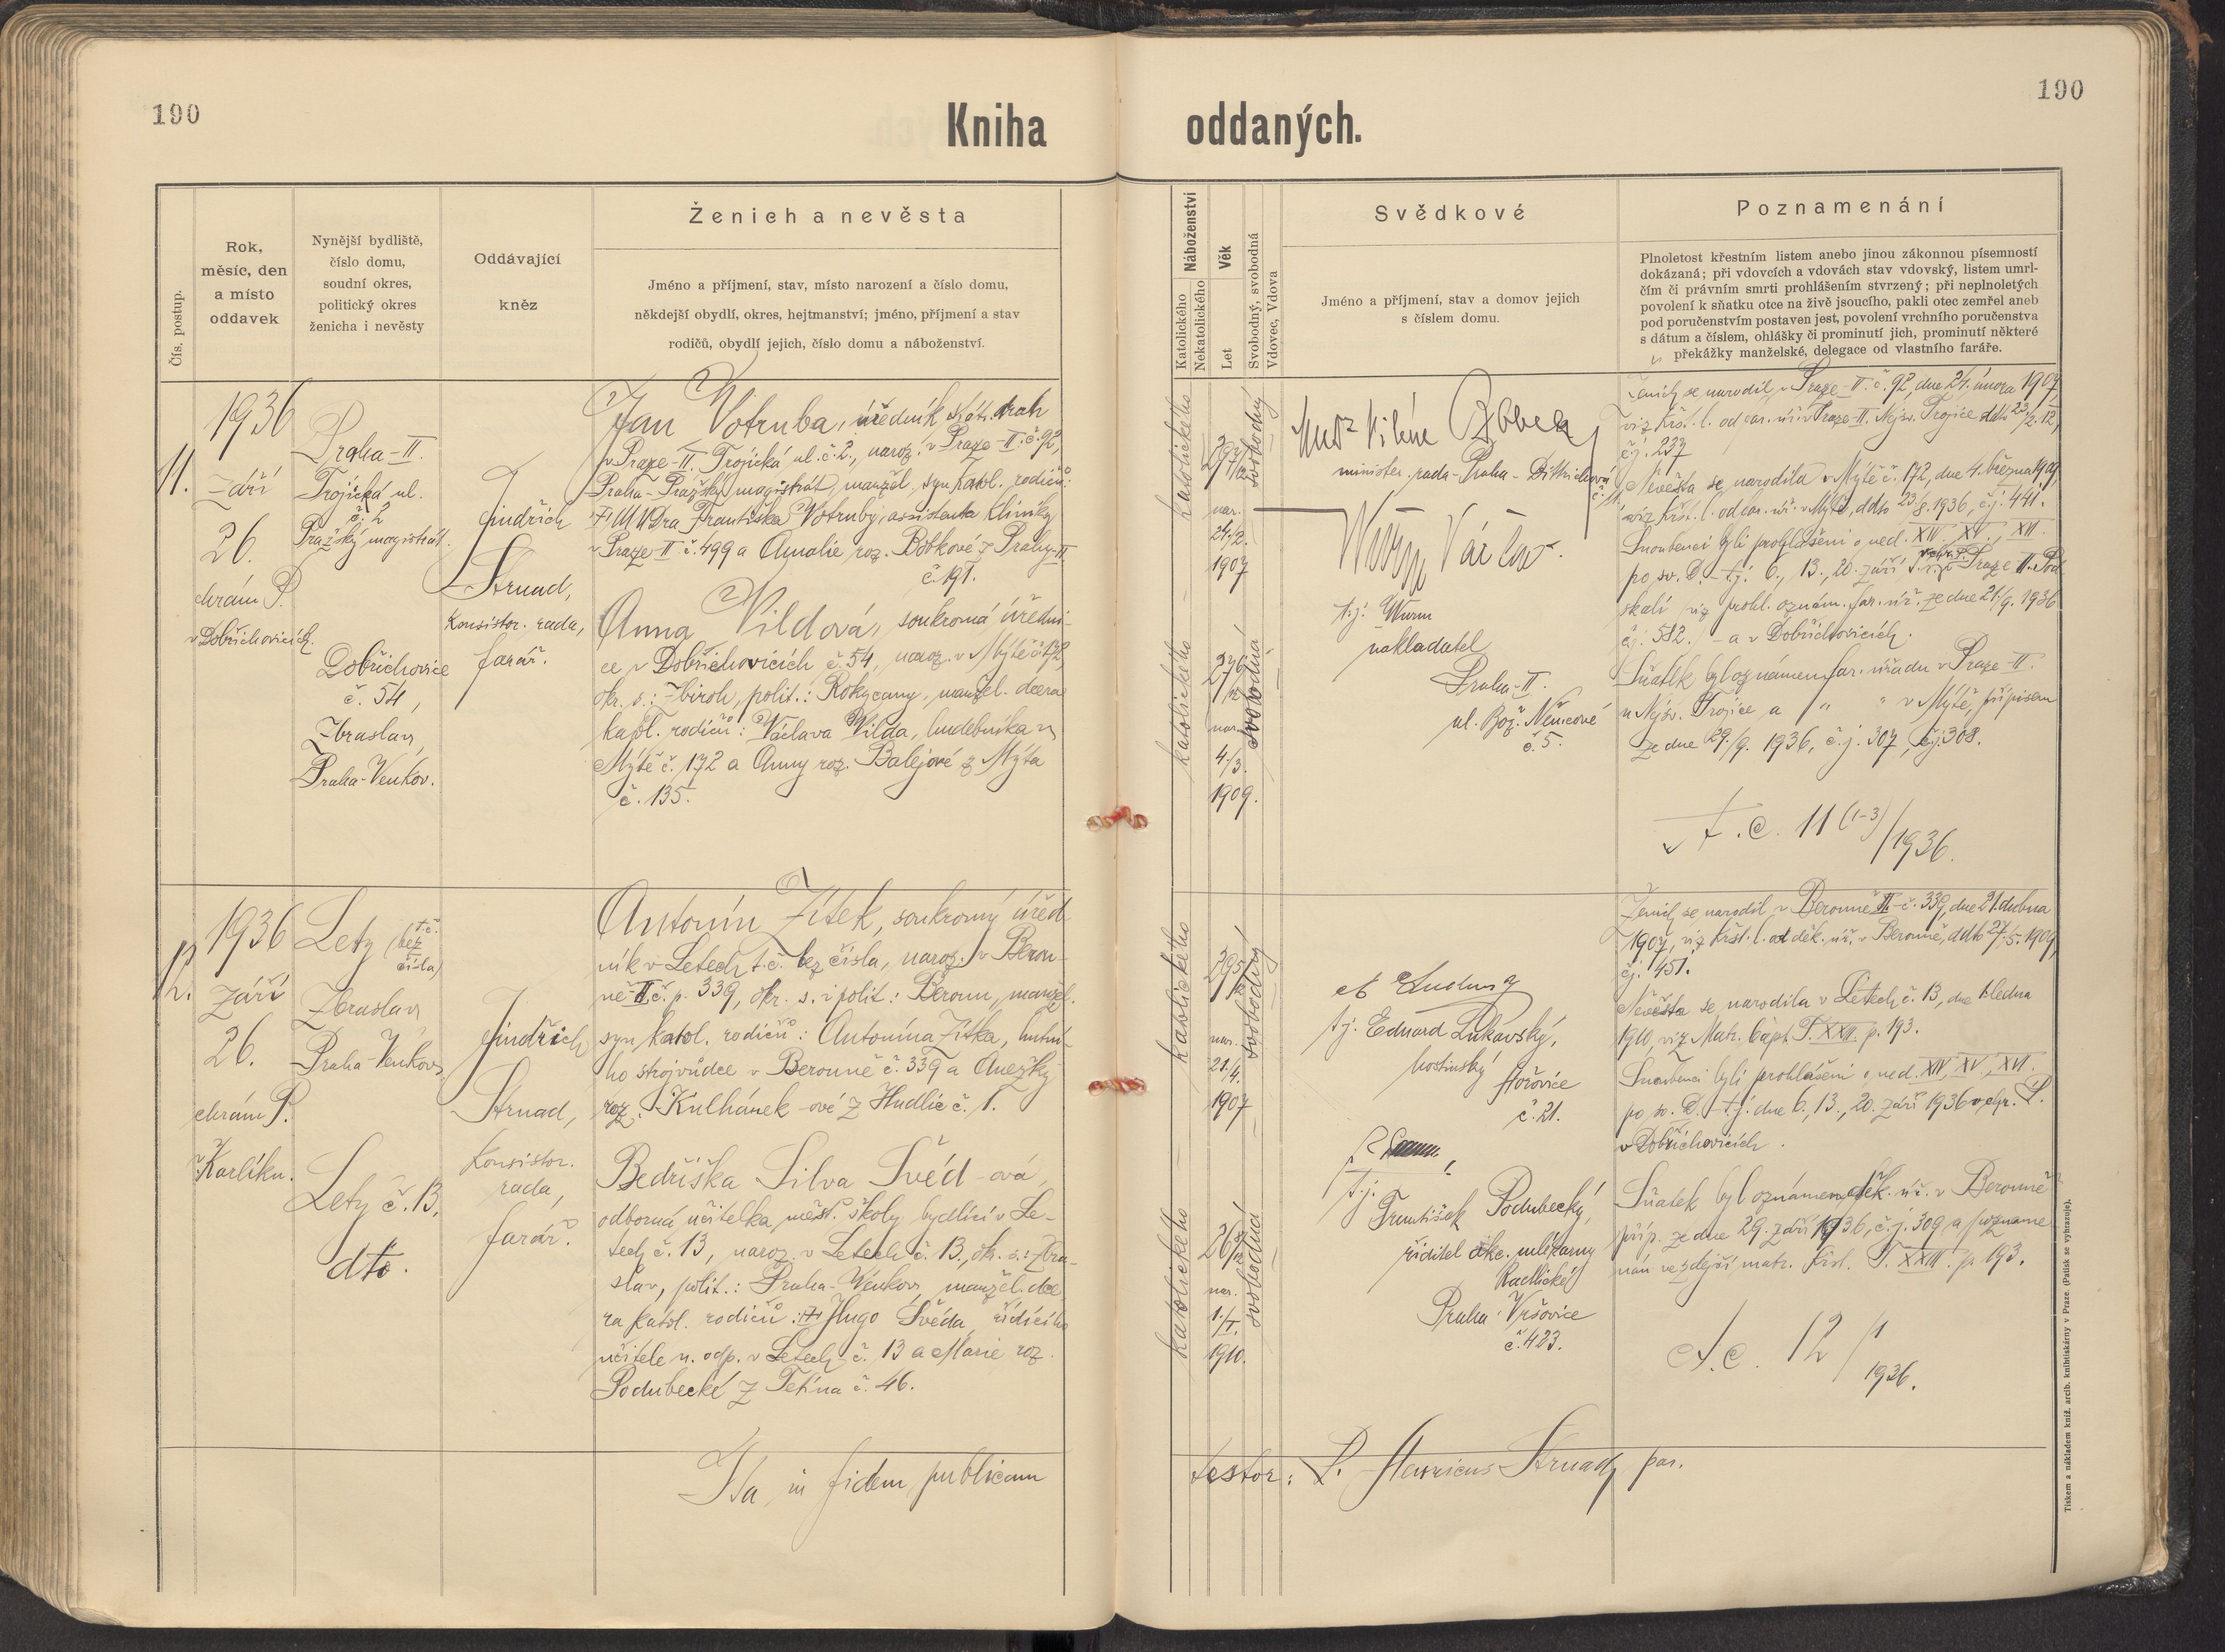 190
190
Kniha
oddaných.
Čís. postup.
Rok,
měsíc, den
a místo
oddavek
Nynější bydliště,
číslo domu,
soudní okres,
politický okres
ženicha i nevěsty
Oddávající
kněz
Ženich a nevěsta
Jméno a příjmení, stav, místo narození a číslo domu,
někdejší obydlí, okres, hejtmanství; jméno, příjmení a stav
rodičů, obydlí jejich, číslo domu a náboženství.
Náboženství
Katolického
Nekatolického
Věk
Let
Svobodný, svobodná
Vdovec, Vdova
Svědkové
Jméno a příjmení, stav a domov jejich
s číslem domu.
Poznamenání
Plnoletost křestním listem anebo jinou zákonnou písemností
dokázaná; při vdovcích a vdovách stav vdovský, listem umrl-
čím či právním smrti prohlášením stvrzený; při neplnoletých
povolení k sňatku otce na živě jsoucího, pakli otec zemřel aneb
pod poručenstvím postaven jest, povolení vrchního poručenstva
s dátum a číslem, ohlášky či prominutí jich, prominutí některé
překážky manželské, delegace od vlastního faráře.
11.
1936
září
26.
chrám P.
v Dobřichovicích.
Praha-II.
Trojická ul.
č. 2
Pražský magistrát.
Dobřichovice
č. 54,
Zbraslav,
Praha-Venkov.
Jindřich
Strnad,
konsistor. rada,
farář.
Jan Votruba, úředník stát. drah
v Praze-II. Trojická ul. č. 2., naroz. v Praze-II. č. 92,
Praha-Pražský magistrát, manžel. syn katol. rodičů:
† MUDra Františka Votruby, assistenta kliniky
v Praze-II č. 499 a Amalie roz. Bobkové z Prahy-II.
č. 191.
Anna Vildová, soukromá úředni-
ce v Dobřichovicích č. 54, naroz. v Mýtě č. 172,
okr. s.: Zbiroh, polit.: Rokycany, manžel. dcera
katol. rodičů: Václava Vilda, hudebníka v
Mýtě č. 172 a Anny roz. Balejové z Mýta
č. 135.
katolického
29 7/12
nar.
24./2.
1907
svobodný
katolického
27 6/12
nar.
4./3.
1909.
svobodná
minister. rada-Praha-Dittrichova
Václav
t.j. Wurm
nakladatel
Praha-II.
ul. Bož. Němcové
č. 5.
Ženich se narodil v Praze-II. č. 92, dne 24. února 1907,
viz křst. l. od far. úř. v Praze-II. Nejsv. Trojice ddto 23/2.12,
č.j. 237
Nevěsta se narodila v Mýtě č. 172, dne 4. března 1909,
viz křst. l. od far. úř. v Mýtě, ddto 23/8. 1936, č.j. 441.
Snoubenci byli prohlášeni o ned. XIV., XV., XVI.
po sv. D. - t.j. 6., 13., 20. září v Praze-II. Pod
skalí viz prohl. oznám. far. úř. ze dne 21./9. 1936
č.j. 582. - a v Dobřichovicích.
Sňatek byl oznámen far. úřadu v Praze-II.
u Nejsv. Trojice a " " v Mýtě, přípisem
ze dne 29./9. 1936, č.j. 307, č.j. 308.
A.c. 11 (1-3)/1936.
12.
1936
září
26.
chrám P.
v Karlíku.
Lety (t.č.
bez
čísla)
Zbraslav
Praha-Venkov.
Lety č. 13,
dto.
Jindřich
Strnad,
konsistor.
rada,
farář.
Antonín Zítek, soukromý úřed-
ník v Letech t.č. bez čísla, naroz. v Berou-
ně-II. č. p. 339, okr. s. i polit.: Beroun, manžel.
syn katol. rodičů: Antonína Zítka, hutní-
ho strojvůdce v Berouně č. 339 a Anežky
roz. Kulhánek-ové z Hudlic č. 1.
Bedřiška Silva Švéd-ová,
odborná učitelka měšť. školy bydlící v Le-
tech č. 13, naroz. v Letech č. 13., ok. s.: Zbra-
slav, polit.: Praha-Venkov, manžel. dce-
ra katol. rodičů: † Hugo Švéda, řídícího
učitele n. odp. v Letech č. 13 a Marie roz.
Podubecké z Tetína č. 46.
katolického
29 5/12
nar.
21./4.
1907
svobodný
katolického
26
nar.
1./I.
1910.
svobodná
t.j. Eduard Lukavský,
hostinský
Hořovice
č. 21.
t.j.
František Podubecký,
ředitel akc. mlékárny
Radlické
Praha-Vršovice
č. 423.
Ženich se narodil v Berouně-II.-č. 339, dne 21. dubna
1907, viz křst. l. od děk. úř. v Berouně, ddto 27./5. 1909,
č.j. 451.
Nevěsta se narodila v Letech č. 13, dne 1. ledna
1910, viz Matr. bapt. T. XXII. p. 193.
Snoubenci byli prohlášeni o ned. XIV., XV., XVI.
po sv. D. - t.j. dne 6., 13., 20. září 1936 v chr. P.
v Dobřichovicích.
Sňatek byl oznámen děk. úř. v Berouně
příp. ze dne 29. září 1936, č.j. 309 a pozname-
nán ve zdejší matr. křst. T. XXII. p. 193.
A.c. 12/1
1936.
Ita in fidem publicam
testor: P. Henricus Strnad, par.
Tiskem a nákladem kníž. arcib. knihtiskárny v Praze. (Patisk se vyhrazuje).